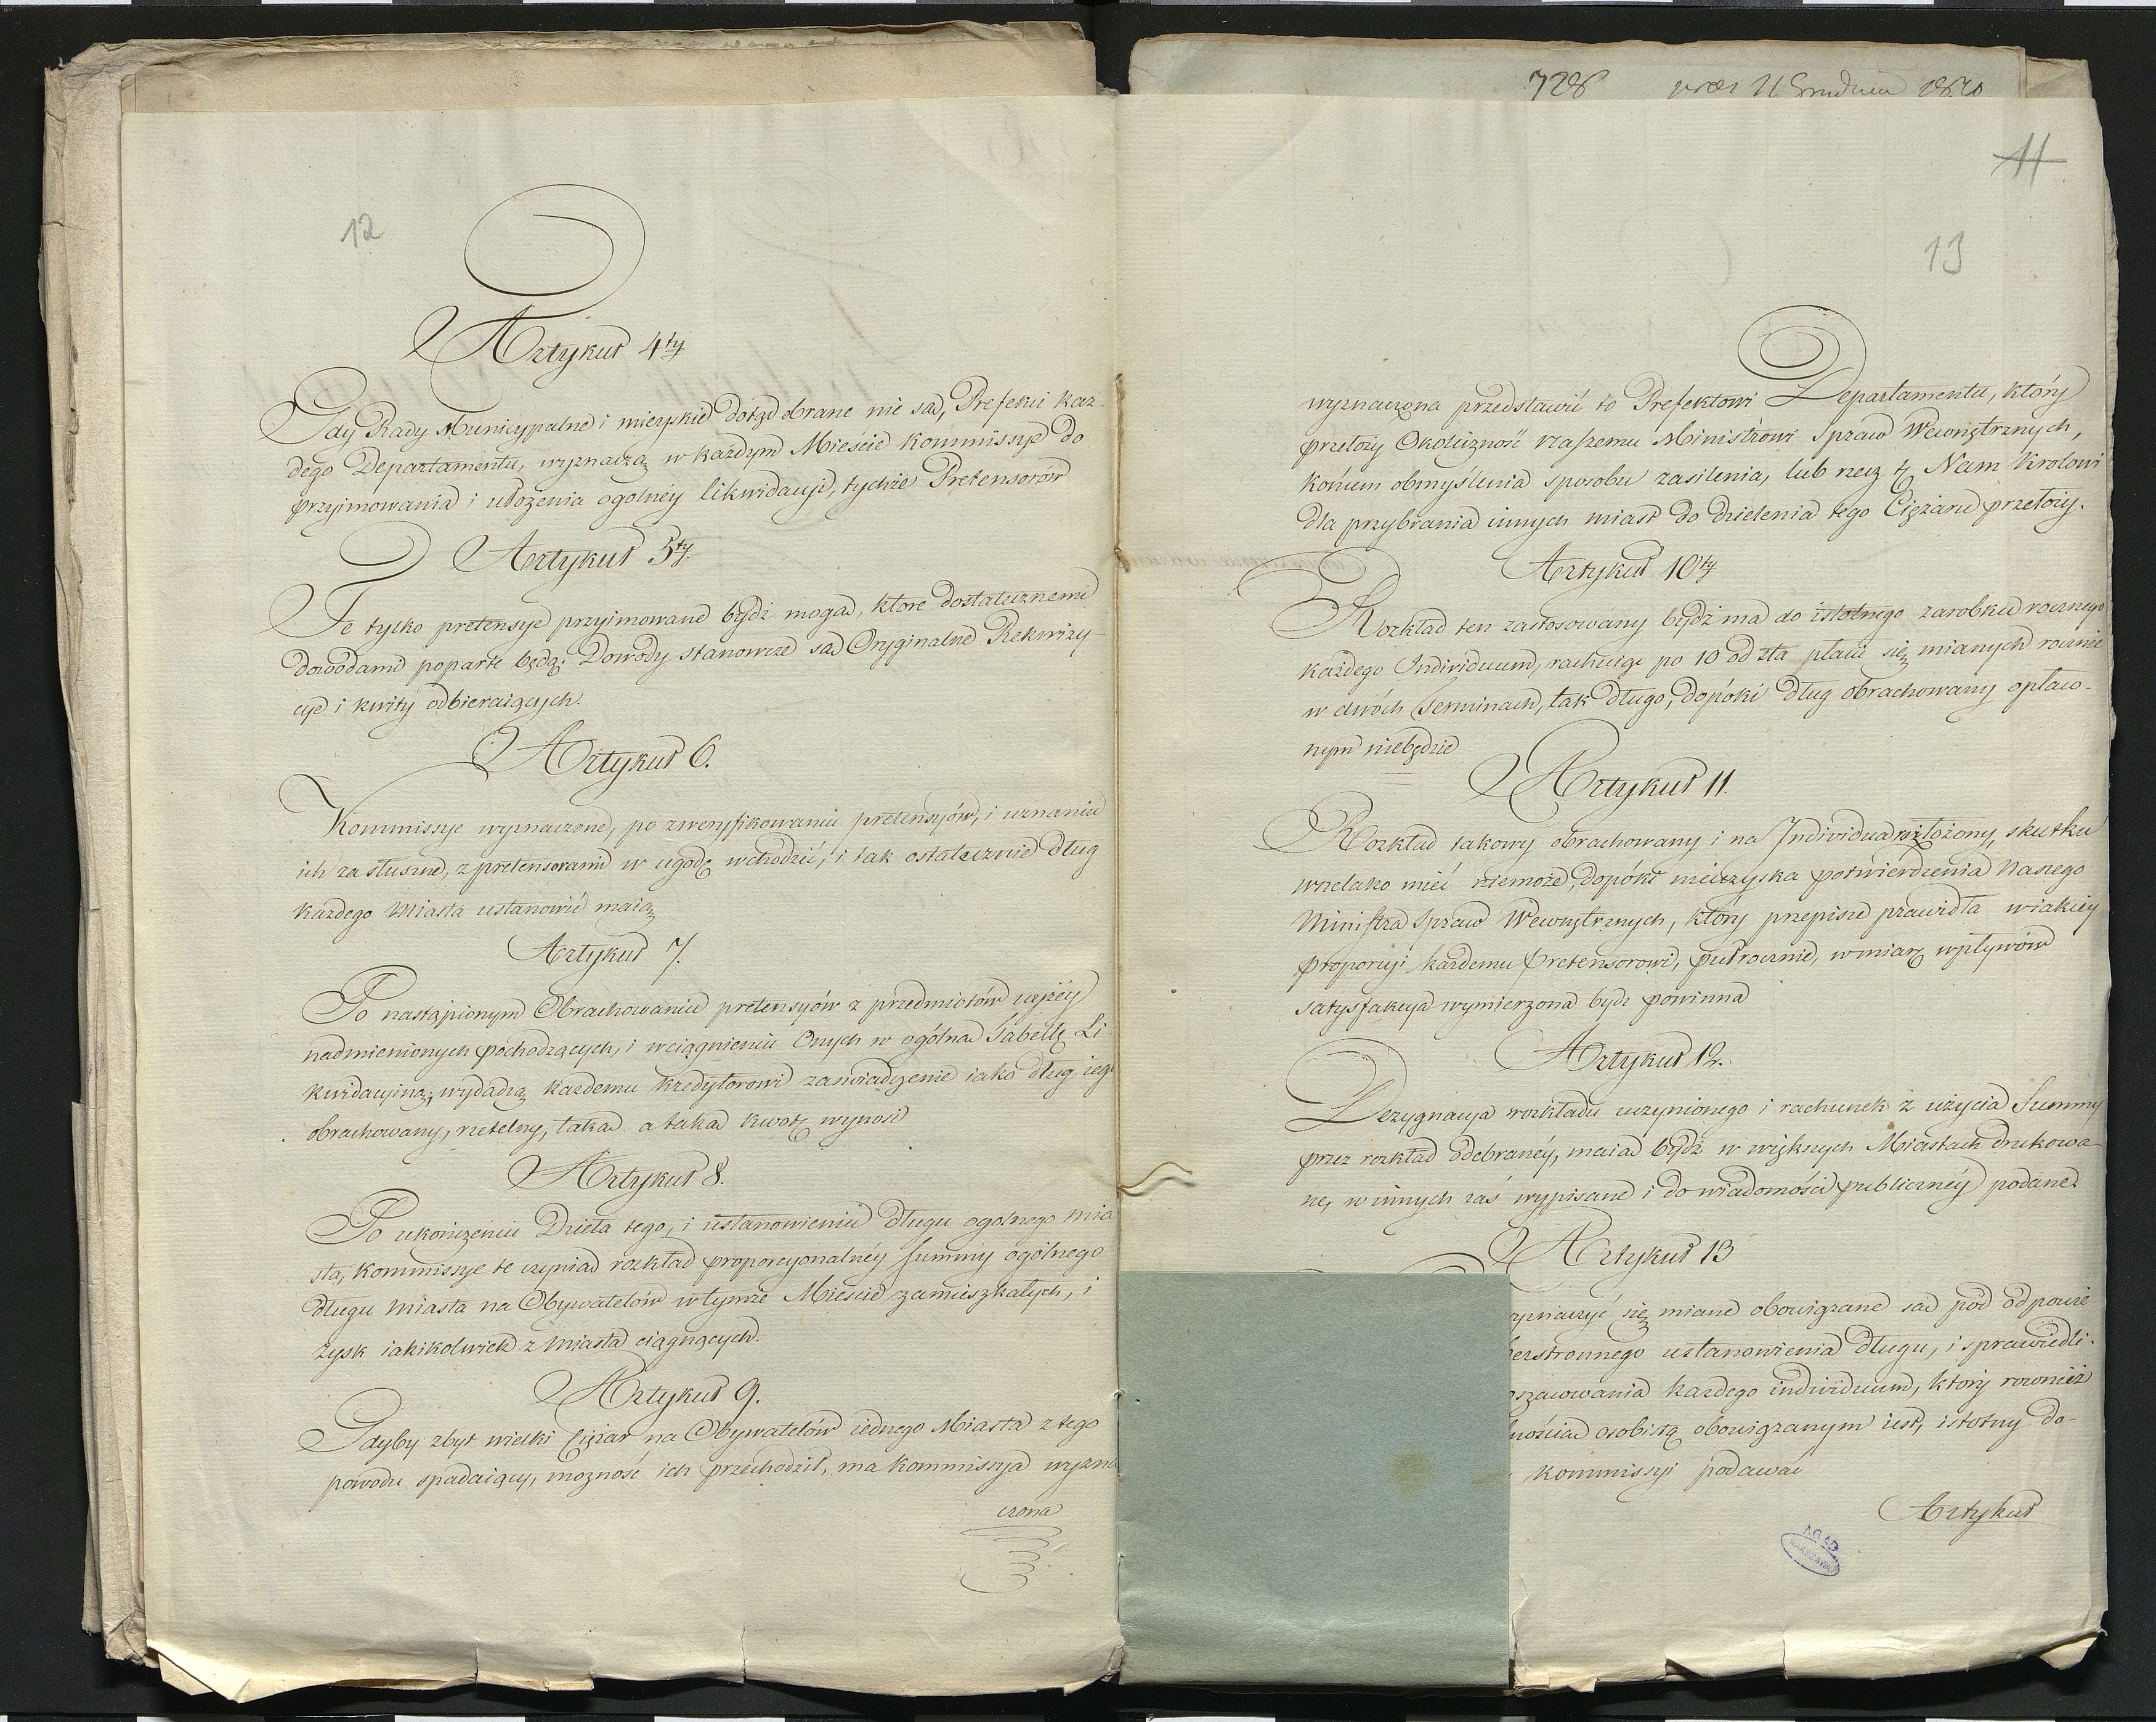 12
Artykuł 4ty
Gdy Rady Municypalne i mieyskie dotąd obrane nie są, Prefekci kaz-
dego Departamentu, wyznaczą w każdym Mieście kommissye do
przyimowania i ułożenia ogolnéy likwidacyi, tychże Pretensorów
Artykuł 5ty.
Te tylko pretensye przyimowane bydź mogą, ktore dostatecznemi
dowodami poparte będą: Dowody stanowcze są Oryginalne Rekwizy-
cye i kwity odbieraiących.
Artykuł 6.
Kommissye wyznaczone, po zweryfikowaniu pretensyów, i uznaniu
ich za słuszne, z pretensorami w ugodę wchodzić, i tak ostatecznie Dług
każdego Miasta ustanowić maią
Artykuł 7.
Po nastąpionym Obrachowaniu pretensyów z przedmiotów wyżéy
nadmienionych pochodzących, i wciągnieniu Onych w ogólną Tabellę Li-
kwidacyiną, wydadzą każdemu kredytorowi zaswiadczenie iako dług iego
obrachowany, rzetelny, taką a taką kwotę wynosi
Artykuł 8.
Po ukończeniu Dzieła tego, i ustanowieniu długu ogolnego Mia
sta, kommissye te uczynią rozkład proporcyonalnéy summy ogólnego
długu Miasta na Obywatelów w tymże Mieście zamieszkałych, i
zysk iakikolwiek z Miasta ciągnących.
Artykuł 9.
Gdyby zbyt wielki Ciężar na Obywatelów iednego Miasta z tego
powodu spadaiący, możność ich przechodził, ma kommissya wyzna
czona
728 11 Grudnia 1810
11
13
wyznaczona przedstawić to Prefektowi Departamentu, który
przełoży Okoliczność naszemu Ministrowi Spraw Wewnętrznych,
końcem obmyślenia sposobu zasilenia, lub rzecz tę Nam Krolowi
dla przybrania innych miast do dzielenia tego Ciężaru przełoży.
Artykuł 10ty
Rozkład ten zastosowany bydź ma do istotnego zarobku rocznego
każdego Individuum, rachuiąc po 10 od sta płacić się mianych rocznie
w dwóch Terminach, tak długo, dopóki dług obrachowany opłaco-
nym niebędzie
Artykuł 11.
Rozkład takowy obrachowany i na Individua rozłożony, skutku
wszelako mieć niemoże, dopóki nieuzyska potwierdzenia Naszego
Ministra Spraw Wewnętrznych, który przepisze prawidła w iakiey
proporcyi każdemu Pretensorowi, półrocznie, w miarę wpływów
satysfakcya wymierzona bydź powinna
Artykuł 12.
Dezygnacya rozkładu uczynionego i rachunek z użycia Summy
przez rozkład odebranéy, maią bydź w większych Miastach drukowa-
ne, w innych zaś wypisane i do wiadomości publicznéy podane.
Artykuł 13
yznaczyć się miane obowiązane są pod odpowie
bezstronnego ustanowienia długu, i sprawiedli-
oszacowania każdego individuum, który rownież
nością osobistą obowiązanym iest, istotny do-
kommissyi podawać
Artykuł
AGAD
WARSZAWA